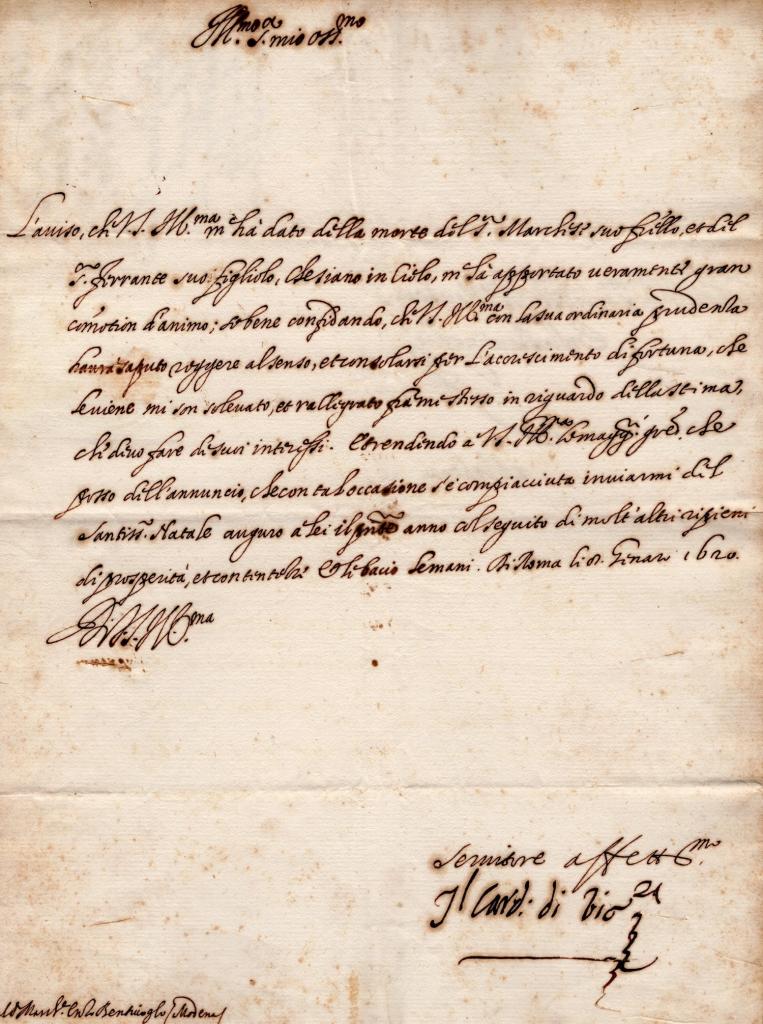 Ill.mo S. mio oss.mo
L'auiso, che V.S. Ill.ma m'ha dato della morte del S.r Marchese suo fr̃ello, et del
S. Ferrante suo figliolo, che siano in Cielo, m'ha apportato ueramente gran
comotion d'animo; se bene confidando, che V.S. Ill.ma con la sua ordinaria prudenza
haurà saputo reggere al senso, et consolarsi per l'accrescimento di fortuna, che
le uiene mi son soleuato, et rallegrato fra me stesso in riguardo della stima,
che deuo fare de suoi interessi. Et rendendo a V.S. Ill.ma le magg.ri gre, che
posso dell'annuncio, che con tal occasione s'è compiacciuta inuiarmi del
Santiss.o Natale auguro a lei il pnte anno col seguito di molt'altri ripieni
di prosperità, et contentezze Et le bacio le mani. Di Roma li Genaro 1620.
Di V.S. Ill.ma
Seruitore affett.mo
Il Card: di
Bentiuoglio Modena